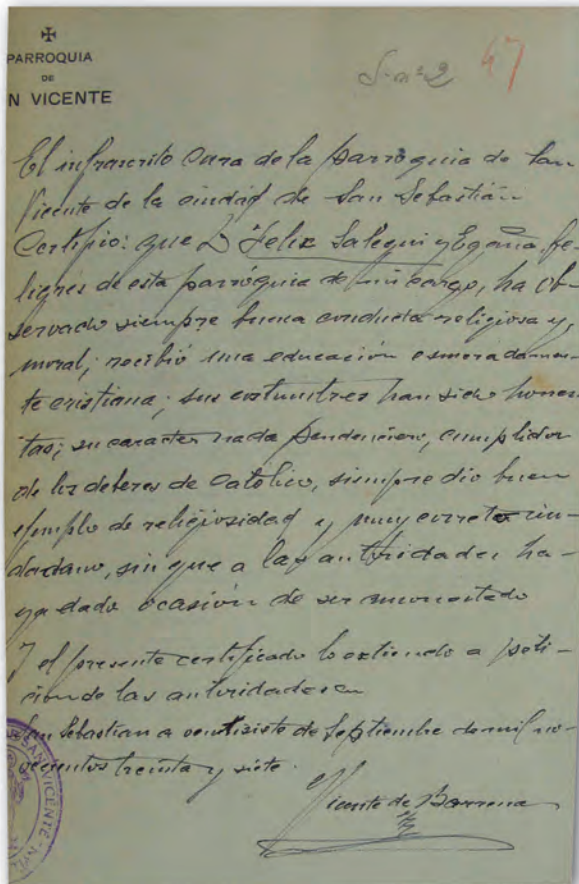 PARROQUIA
DE
N VICENTE
S. nº 2 67
El infrascrito Cura de la parroquia de San
Vicente de la ciudad de San Sebastián
Certifico: que D Felix Salegui y Egaña, fe-
ligrés de esta parróquia de mi cargo, ha ob-
servado siempre buena conducta religiosa y
moral; recibió una educación esmeradamen-
te cristiana; sus costumbres han sido hones-
tas; su caracter nada pendenciero, cumplidor
de los deberes de Católico, siempre dio buen
ejemplo de religiosidad y muy correto ciu-
dadano, sin que a las autoridades ha-
ya dado ocasión de ser amonestado
Y el presente certificado lo extiendo a peti-
cion de las autoridades en
San Sebastian a ventisiete de Septiembre de mil no-
vecientos treinta y siete.
Vicente de Barrena
SAN VICENTE